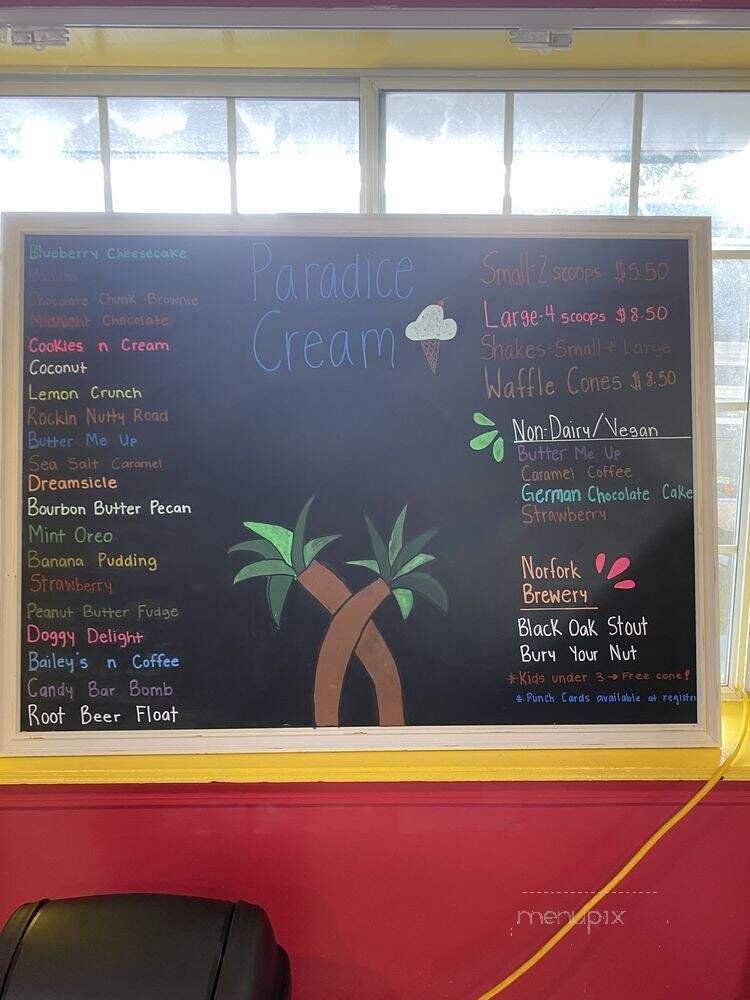 Blueberry Cheesecake
Vanilla
Chocolate Chunk Brownie
Midnight Chocolate
Cookies n Cream
Coconut
Lemon Crunch
Rockin Nutty Road
Butter Me Up
Sea Salt Caramel
Dreamsicle
Bourbon Butter Pecan
Mint Oreo
Banana Pudding
Strawberry
Peanut Butter Fudge
Doggy Delight
Bailey's n Coffee
Candy Bar Bomb
Root Beer Float
Paradice
Cream
Small-2 scoops $5.50
Large-4 scoops $8.50
Shakes-Small + Large
Waffle Cones $8.50
Non-Dairy/Vegan
Butter Me Up
Caramel Coffee
German Chocolate Cake
Strawberry
Norfork
Brewery
Black Oak Stout
Bury Your Nut
*Kids under 3→Free cone!
* Punch Cards available at register
menupix